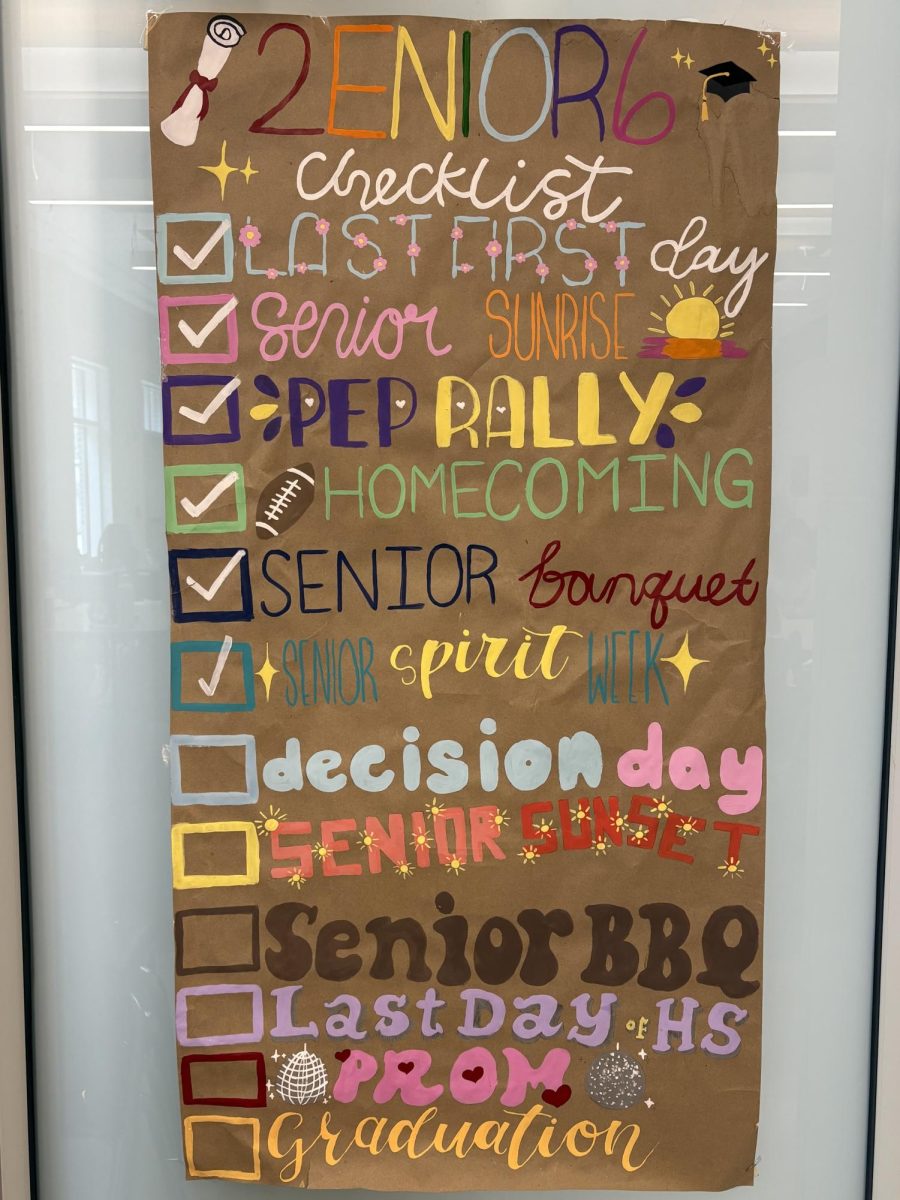 2ENIOR6
checklist
LAST FIRST day
senior SUNRISE
PEP RALLY
HOMECOMING
SENIOR banquet
SENIOR spirit WEEK
decision day
SENIOR SUNSET
Senior BBQ
Last Day of HS
PROM
Graduation